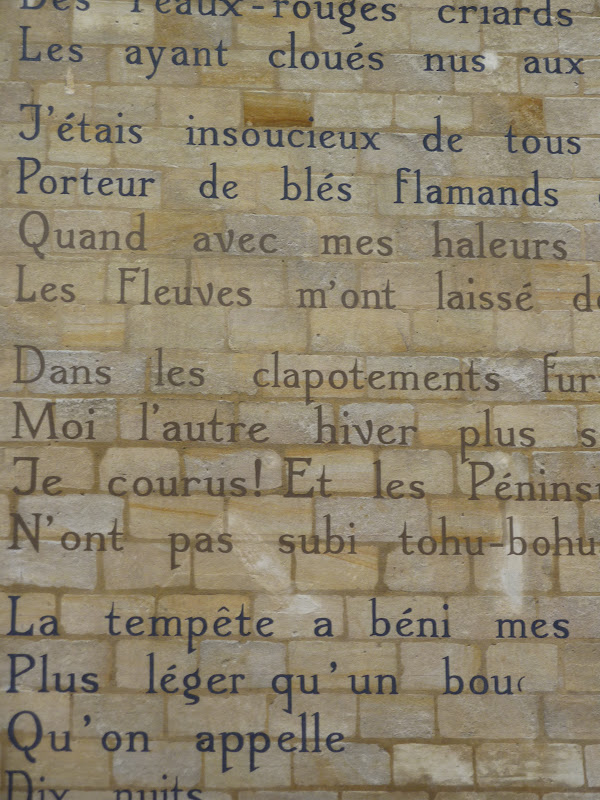 Des Peaux-rouges criards
Les ayant cloués nus aux
J'étais insoucieux de tous
Porteur de blés flamands
Quand avec mes haleurs
Les Fleuves m'ont laissé
Dans les clapotements fur
Moi l'autre hiver plus s
Je courus! Et les Péninsu
N'ont pas subi tohu-bohu
La tempête a béni mes
Plus léger qu'un bouc
Qu'on appelle
Dix nuits